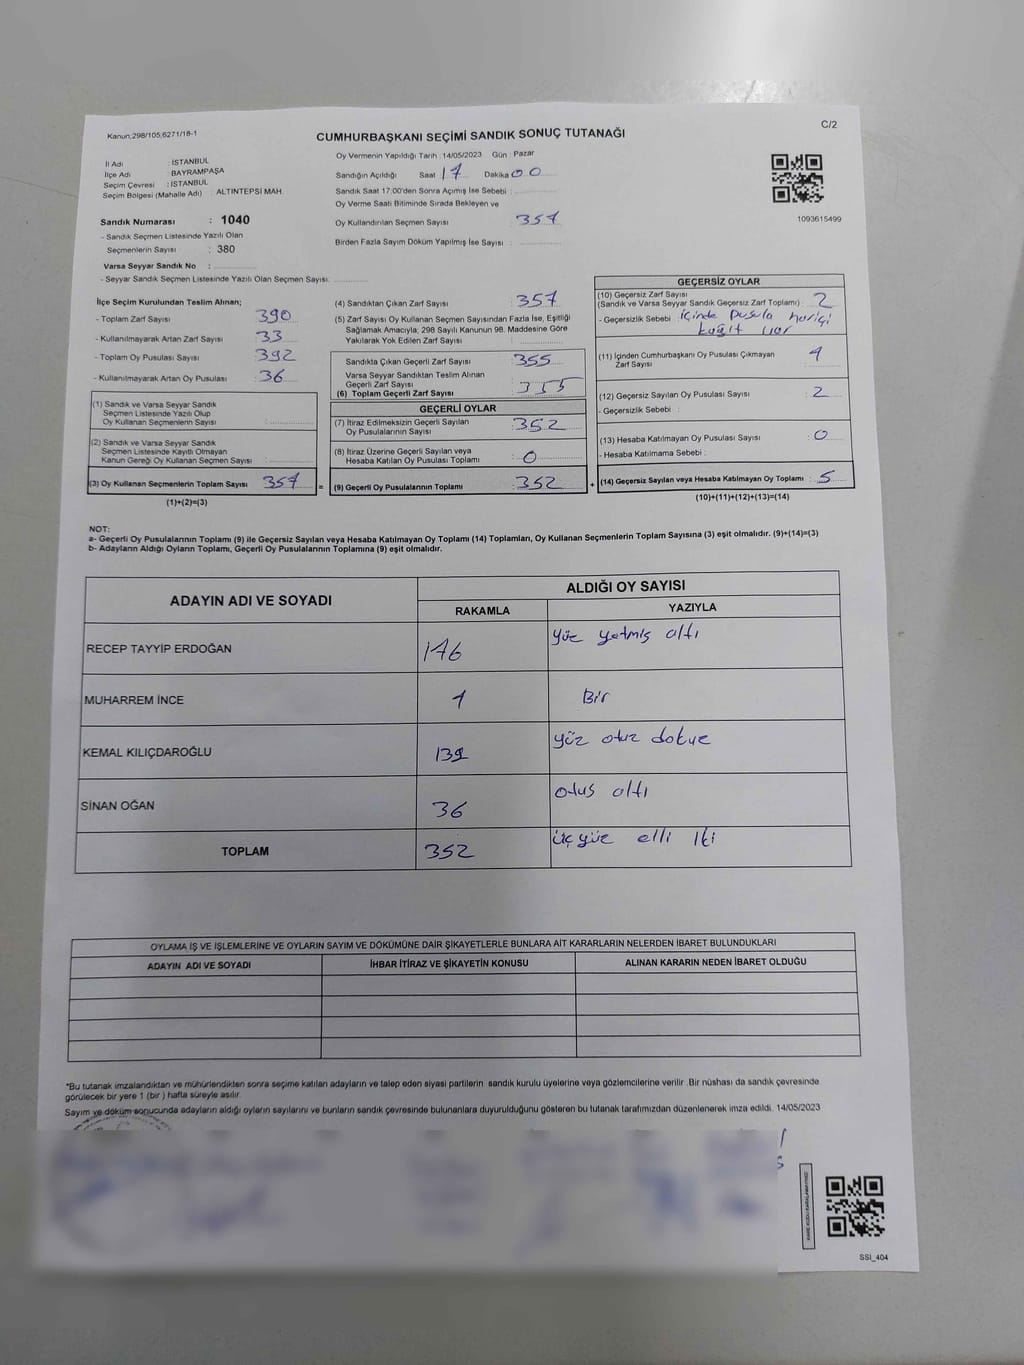 Kanun;298/105,6271/18-1
C/2
CUMHURBAŞKANI SEÇİMİ SANDIK SONUÇ TUTANAĞI
İl Adı : İSTANBUL
İlçe Adı : BAYRAMPAŞA
Seçim Çevresi : İSTANBUL
Seçim Bölgesi (Mahalle Adı) : ALTINTEPSİ MAH.
Oy Vermenin Yapıldığı Tarih : 14/05/2023 Gün : Pazar
Sandığın Açıldığı Saat 17 Dakika 00
Sandık Saat 17:00'den Sonra Açılmış İse Sebebi :
Oy Verme Saati Bitiminde Sırada Bekleyen ve
Oy Kullandırılan Seçmen Sayısı : 357
Birden Fazla Sayım Döküm Yapılmış İse Sayısı :
1093615499
Sandık Numarası : 1040
- Sandık Seçmen Listesinde Yazılı Olan
Seçmenlerin Sayısı : 380
Varsa Seyyar Sandık No :
- Seyyar Sandık Seçmen Listesinde Yazılı Olan Seçmen Sayısı:
İlçe Seçim Kurulundan Teslim Alınan;
- Toplam Zarf Sayısı : 390
- Kullanılmayarak Artan Zarf Sayısı : 33
- Toplam Oy Pusulası Sayısı : 392
- Kullanılmayarak Artan Oy Pusulası : 36
(1) Sandık ve Varsa Seyyar Sandık
Seçmen Listesinde Yazılı Olup
Oy Kullanan Seçmenlerin Sayısı :
(2) Sandık ve Varsa Seyyar Sandık
Seçmen Listesinde Kayıtlı Olmayan
Kanun Gereği Oy Kullanan Seçmen Sayısı :
(3) Oy Kullanan Seçmenlerin Toplam Sayısı : 357 =
(1)+(2)=(3)
(4) Sandıktan Çıkan Zarf Sayısı : 357
(5) Zarf Sayısı Oy Kullanan Seçmen Sayısından Fazla İse, Eşitliği
Sağlamak Amacıyla; 298 Sayılı Kanunun 98. Maddesine Göre
Yakılarak Yok Edilen Zarf Sayısı :
Sandıkta Çıkan Geçerli Zarf Sayısı : 355
Varsa Seyyar Sandıktan Teslim Alınan
Geçerli Zarf Sayısı :
(6) Toplam Geçerli Zarf Sayısı : 355
GEÇERLİ OYLAR
(7) İtiraz Edilmeksizin Geçerli Sayılan
Oy Pusulalarının Sayısı : 352
(8) İtiraz Üzerine Geçerli Sayılan veya
Hesaba Katılan Oy Pusulası Toplamı : 0
(9) Geçerli Oy Pusulalarının Toplamı : 352 +
GEÇERSİZ OYLAR
(10) Geçersiz Zarf Sayısı
(Sandık ve Varsa Seyyar Sandık Geçersiz Zarf Toplamı) : 2
- Geçersizlik Sebebi : içinde pusula harici
kağıt var
(11) İçinden Cumhurbaşkanı Oy Pusulası Çıkmayan
Zarf Sayısı : 1
(12) Geçersiz Sayılan Oy Pusulası Sayısı : 2
- Geçersizlik Sebebi :
(13) Hesaba Katılmayan Oy Pusulası Sayısı : 0
- Hesaba Katılmama Sebebi :
(14) Geçersiz Sayılan veya Hesaba Katılmayan Oy Toplamı : 5
(10)+(11)+(12)+(13)=(14)
NOT:
a- Geçerli Oy Pusulalarının Toplamı (9) ile Geçersiz Sayılan veya Hesaba Katılmayan Oy Toplamı (14) Toplamları, Oy Kullanan Seçmenlerin Toplam Sayısına (3) eşit olmalıdır. (9)+(14)=(3)
b- Adayların Aldığı Oyların Toplamı, Geçerli Oy Pusulalarının Toplamına (9) eşit olmalıdır.
ADAYIN ADI VE SOYADI ALDIĞI OY SAYISI
RAKAMLA YAZIYLA
RECEP TAYYİP ERDOĞAN 176 yüz yetmiş altı
MUHARREM İNCE 1 Bir
KEMAL KILIÇDAROĞLU 139 yüz otuz dokuz
SİNAN OĞAN 36 otus altı
TOPLAM 352 üçyüz elli iki
OYLAMA İŞ VE İŞLEMLERİNE VE OYLARIN SAYIM VE DÖKÜMÜNE DAİR ŞİKAYETLERLE BUNLARA AİT KARARLARIN NELERDEN İBARET BULUNDUKLARI
ADAYIN ADI VE SOYADI İHBAR İTİRAZ VE ŞİKAYETİN KONUSU ALINAN KARARIN NEDEN İBARET OLDUĞU
*Bu tutanak imzalandıktan ve mühürlendikten sonra seçime katılan adayların ve talep eden siyasi partilerin sandık kurulu üyelerine veya gözlemcilerine verilir .Bir nüshası da sandık çevresinde
görülecek bir yere 1 (bir ) hafta süreyle asılır.
Sayım ve döküm sonucunda adayların aldığı oyların sayılarını ve bunların sandık çevresinde bulunanlara duyurulduğunu gösteren bu tutanak tarafımızdan düzenlenerek imza edildi. 14/05/2023
SSI_404